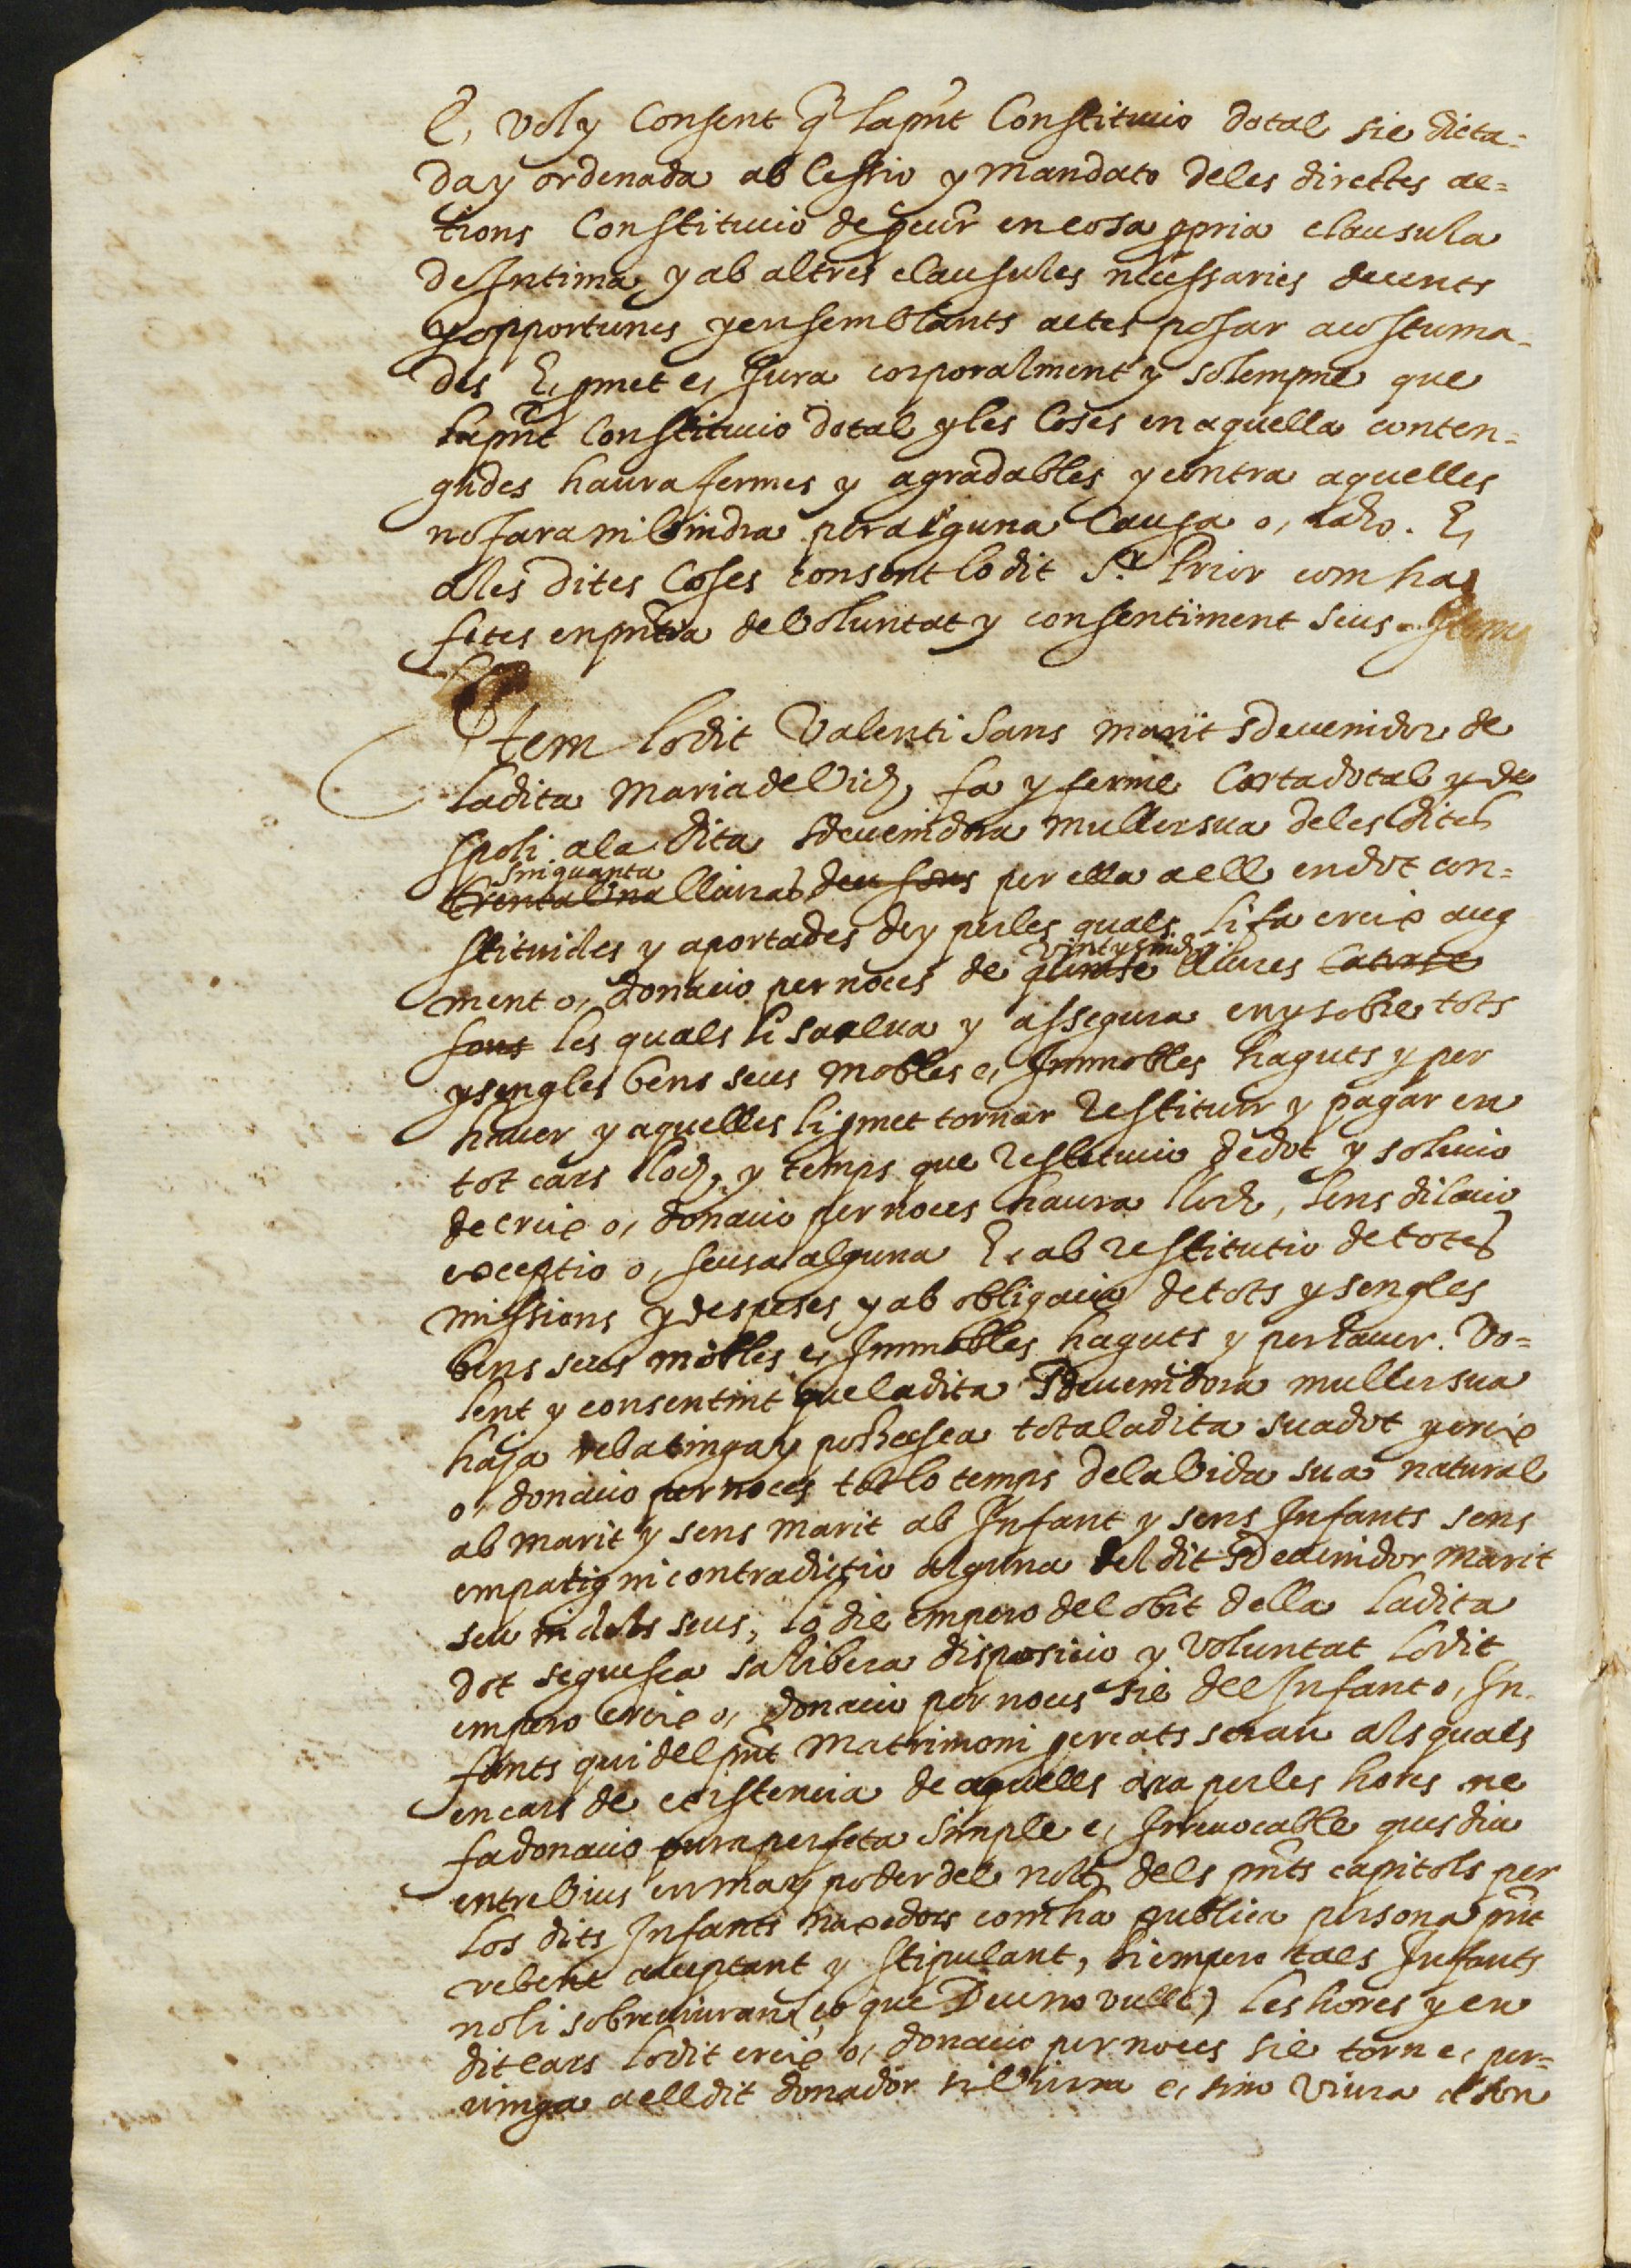 E, vol y Consent q̃ lapnt̃ Constitucio dotal sie dicta-
da y ordenada ab Cessio y mandato deles directes ac-
tions Constitucio de pcur̃ en cosa ppria clausula
de Intima, y ab altres clausules necessaries decents
y opportunes y en semblants actes posar acostuma-
des E, pmet e, Jura corporalment y solempne que
lapnt̃ Constitucio dotal y les Coses en aquella conten-
gudes haura fermes y agradables y contra aquelles
no fara ni vindra per alguna Causa o, raho. E,
a les dites Coses consent lo dit Sr. Prior com ha
fetes en pntia de voluntat y consentiment seus. Item
Item lo dit Valenti Sans marit sdevenidor de
la dita Maria de Vich, fa y ferme Carta dotal y de
spoli a la dita sdevenidora muller sua deles dites
Sinquanta
trenta una lliuras deu sous per ella a ell en dot con-
stituides y aportades de y perles quals li fa creix aug
vint y sinch
ment o, donacio per noces de quinse lliures catorse
sous les quals li salva y assegura en y sobre tots
y sengles bens seus mobles e, Immobles haguts y per
haver y aquelles li pmet tornar Restituir y pagar en
tot cars lloch, y temps que Restitucio de dot y solucio
de creix o, donacio per noces haura lloch, sens dilacio
exceptio o, scusa alguna E, ab restitutio de totes
missions y despeses y ab obligacio de tots y sengles
bens seus mobles e, Immobles haguts y per haver. Vo-
lent y consentint que la dita sdevenidora muller sua
haja reba tinga y possehesca tota la dita sua dot y creix
o, donacio per noces tot lo temps de la vida sua natural
ab marit y sens marit ab Infant y sens Infants sens
empatig ni contradictio alguna del dit sdevenidor marit
seu ni dels seus, lo die empero del obit della la dita
dot seguesca sa libera disposicio y voluntat lo dit
empero creix o, donacio per noces sie del Infant o, In-
fants qui del pnt̃ Matrimoni pcreats seran als quals
en cars de existencia de aquells ara per les hores ne
fa donacio pura perfeta simple e, Irrevocable ques diu
entre vius en ma y poder del nott. dels pnts̃ capitols per
los dits Infants naxedors com ha publica persona pnt̃
rebent acceptant y stipulant, Si empero tals Infants
no li sobreviuran (ço que Deu no vulle) les hores y en
dit cars lo dit creix o, donacio per noces sie torn e, per-
vinga a ell dit donador si viura e, sino viura a son